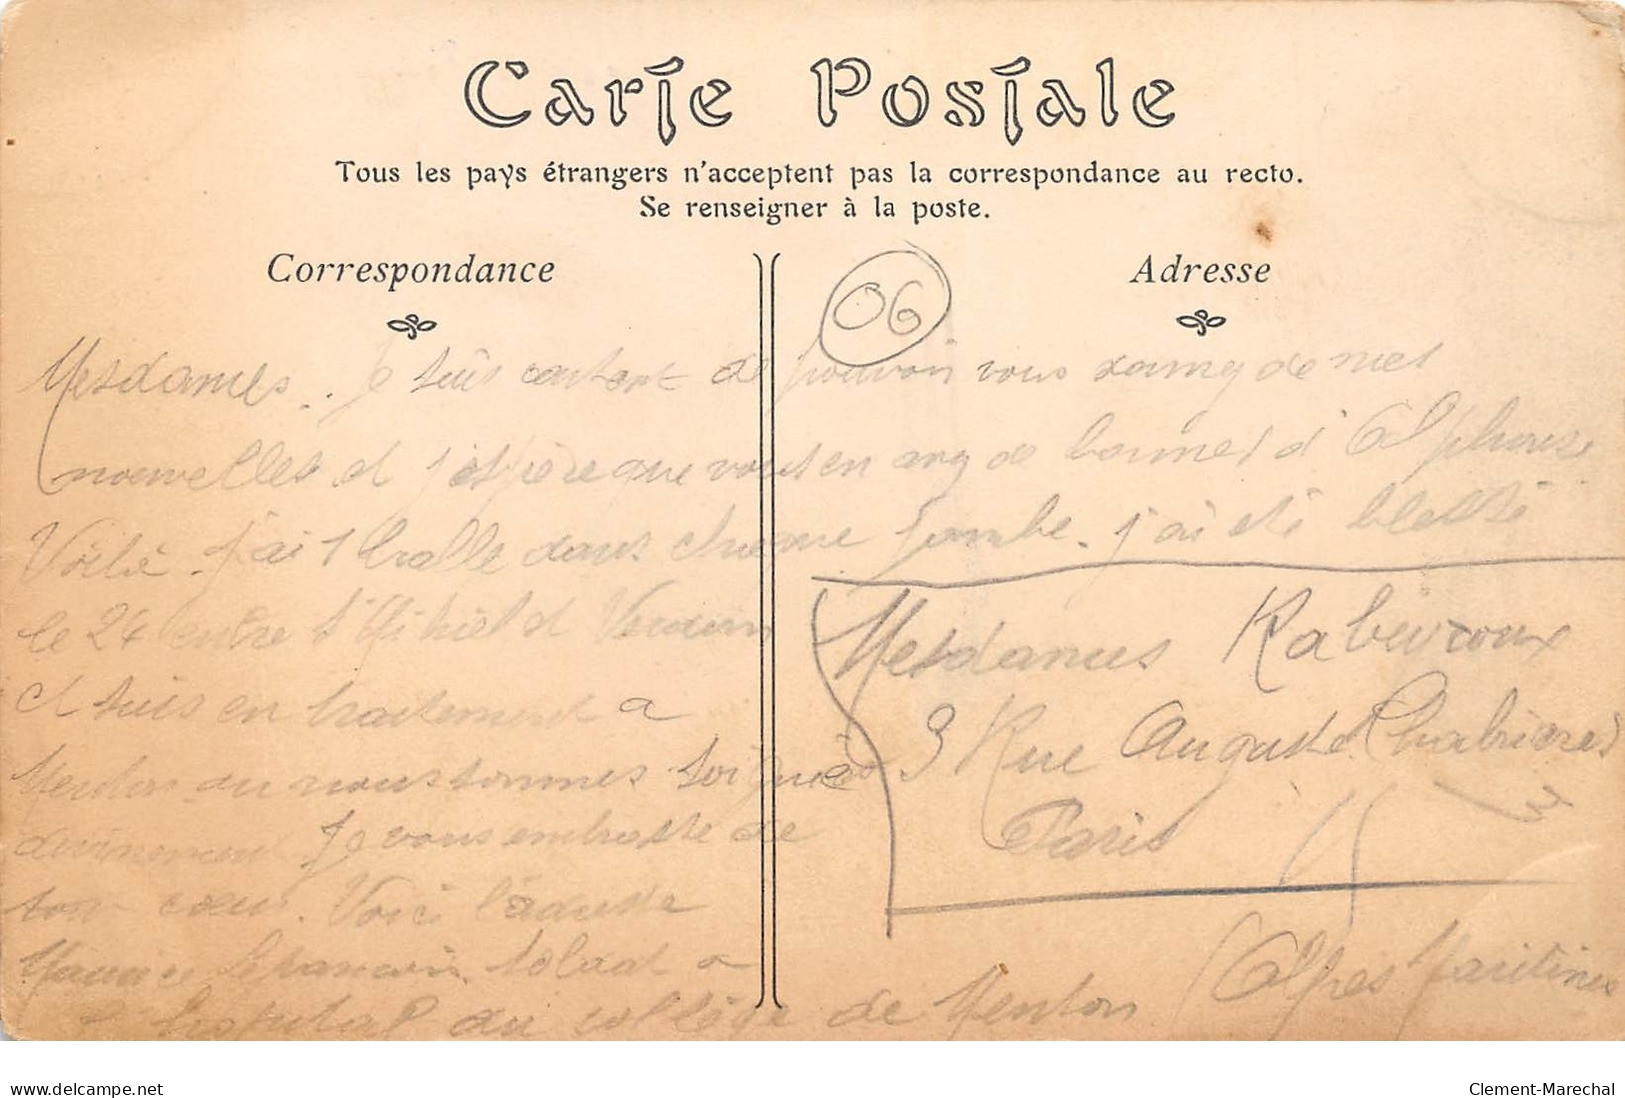 Carte Postale
Tous les pays étrangers n'acceptent pas la correspondance au recto.
Se renseigner à la poste.
Correspondance
Adresse
06
Mesdames.. Je suis content de pouvoir vous de mes
nouvelles et j'espère que vous en de bonnes d'Alphonse.
Voilà. j'ai 1 balle dans chaque jambe. j'ai été blessé
le 24 entre St Mihiel et Verdun
et suis en traitement a
Menton ou nous sommes soignés
divinement Je vous embrasse de
tout cœur. Voici l'adresse
Maurice soldat a
l'hopital du collège de Menton (Alpes Maritimes
Mesdames
3 Rue Auguste Chabrières
Paris
15
delcampe.net
Clement-Marechal